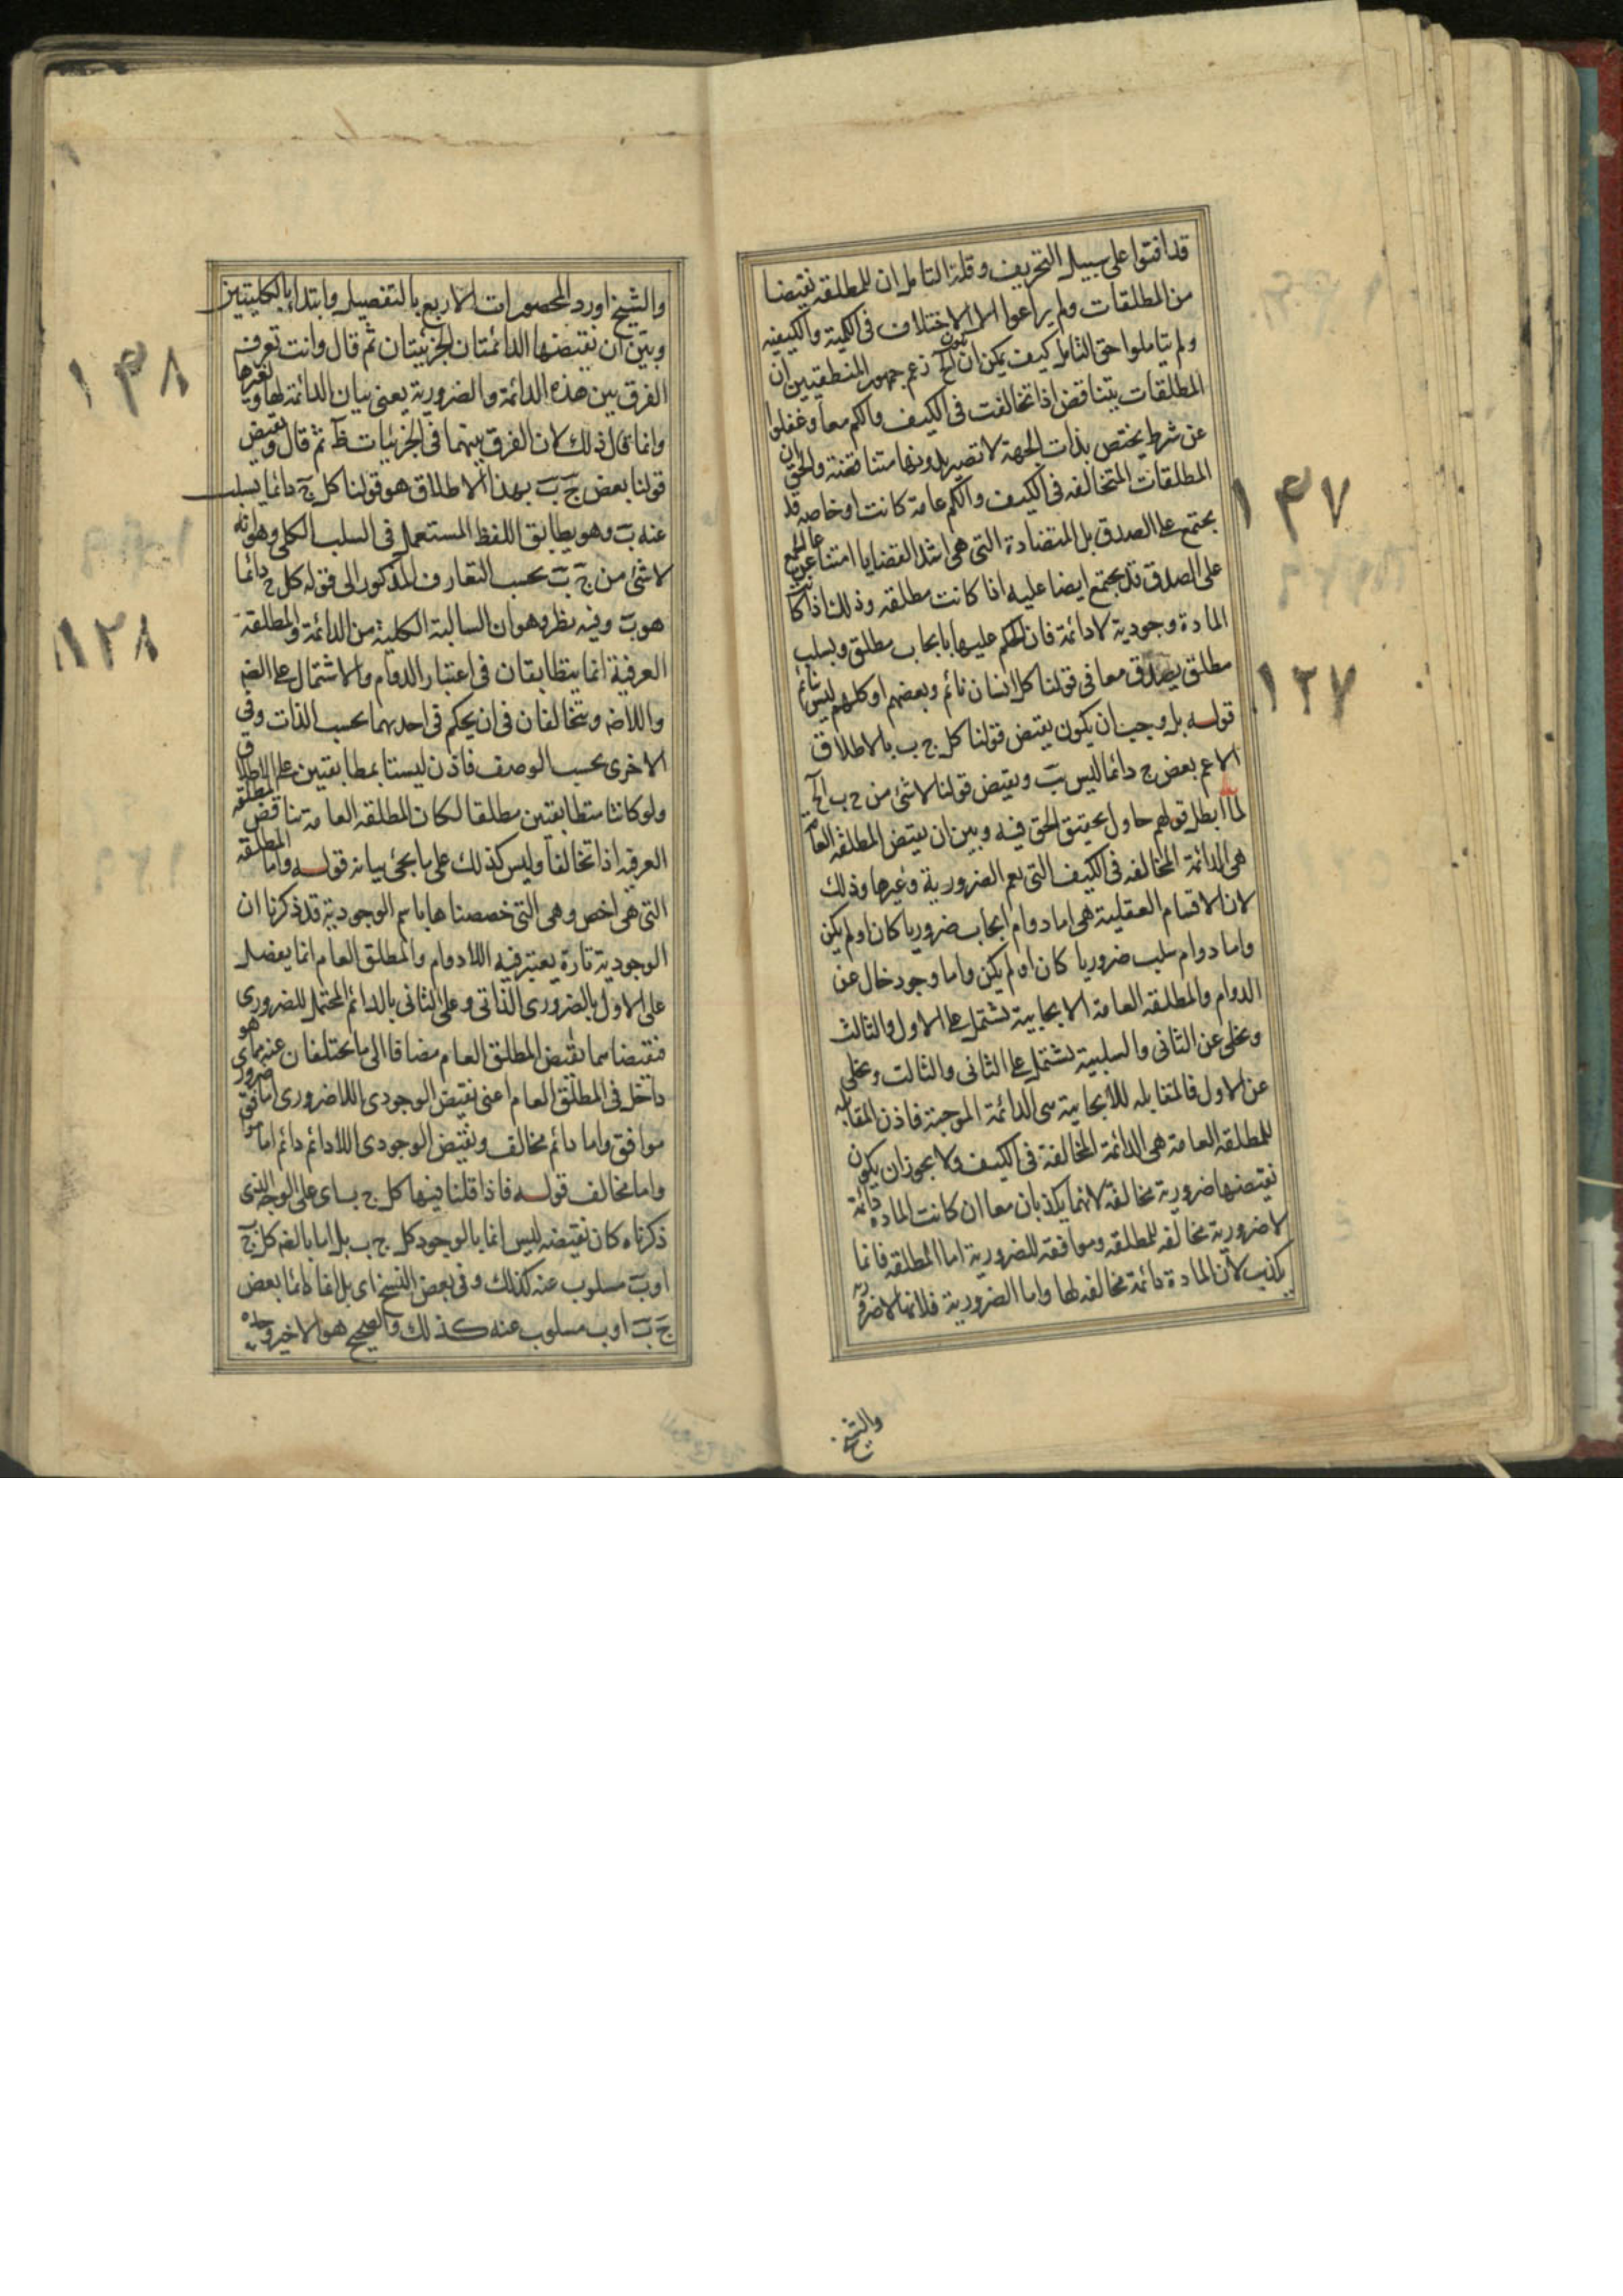 قد افتوا على سبيل التحريف وقلة التامل ان للمطلقه نقيضا
من المطلقات ولم يراعوا الا الاختلاف فى الكمية والكيفيه
ولم يتاملوا حق التامل كيف يمكن ان يكون الخ زعم جمهور المنطقيين ان
المطلقات يتناقض اذا تخالفت فى الكيف والكم معا وغفلوا
عن شرط يختص بذات الجهة لا تصير بدونها متناقضة والحق ان
المطلقات المتخالفه فى الكيف والكم عامة كانت او خاصه قد
يجتمع على الصدق بل المتضادة التى هى اشد القضايا امتناعا عن الجمع
على الصدق قد يجتمع ايضا عليه اذا كانت مطلقه وذلك اذا كانت
المادة وجودية لا دائمة فان الحكم عليها بايجاب مطلق وبسلب
مطلق يصدق معا فى قولنا كل انسان نائم وبعضهم او كلهم ليس نائم
قوله بل وجب ان يكون نقيض قولنا كل ج ب بالاطلاق
الاعم بعض ج دائما ليس ب ونقيض قولنا لا شئ من ج ب الخ
لما ابطل قولهم حاول تحقيق الحق فيه وبين ان نقيض المطلقه العامه
هى الدائمة المخالفه فى الكيف التى يعم الضرورية وغيرها وذلك
لان الاقسام العقلية هى اما دوام ايجاب ضروريا كان او لم يكن
واما دوام سلب ضروريا كان او لم يكن واما وجود خال عن
الدوام والمطلقه العامة الايجابية تشتمل على الاول والثالث
وتخلى عن الثانى والسلبية تشتمل على الثانى والثالث وتخلى
عن الاول فالمقابله للايجابية هى الدائمة الموجبة فاذن المقابله
للمطلقه العامة هى الدائمة المخالفة فى الكيف ولا يجوز ان يكون
نقيضها ضرورية مخالفة لانهما يكذبان معا ان كانت الماده دائمة
لا ضرورية مخالفه للمطلقه وموافقه للضرورية اما المطلقه فانما
يكذب لان المادة دائمة مخالفه لها واما الضرورية فلانها لا ضروريه
والشيخ
١٣٧
١٢٧
والشيخ اورد المحصورات الاربع بالتفصيل وابتدا بالكليتين
وبين ان نقيضها الدائمتان الجزئيتان ثم قال وانت تعرف
الفرق بين هذه الدائمة والضرورية يعنى بيان الدائمة لها ولغيرها
وانما قال ذلك لان الفرق بينهما فى الجزئيات ظ ثم قال ونقيض
قولنا بعض ج ب بهذا الاطلاق هو قولنا كل ج دائما يسلب
عنه ب وهو يطابق اللفظ المستعمل فى السلب الكلى وهو انه
لا شئ من ج ب بحسب التعارف المذكور الى قوله كل ج دائما
هو ب وفيه نظر وهو ان السالبة الكلية من الدائمة والمطلقة
العرفية انما يتطابقان فى اعتبار الدوام والاشتمال على الضه
واللاضه ويتخالفان فى ان يحكم فى احديهما بحسب الذات وفى
الاخرى بحسب الوصف فاذن ليستا بمطابقتين على الاطلاق
ولو كانتا متطابقتين مطلقا لكان المطلقه العامة تناقض المطلقه
العرفيه اذا تخالفا وليس كذلك على ما يجئ بيانه قوله واما المطلقه
التى هى اخص وهى التى خصصناها باسم الوجودية قد ذكرنا ان
الوجودية تارة يعتبر فيه اللادوام والمطلق العام انما يفضل
على الاول بالضرورى الذاتى وعلى الثانى بالدائم المحتمل للضرورى
فنقيضاهما نقيض المطلق العام مضافا الى ما يختلفان عنه مما هو
داخل فى المطلق العام اعنى نقيض الوجودى اللاضرورى اما ضرورى
موافق واما دائم مخالف ونقيض الوجودى اللادائم دائم اما موافق
واما مخالف قوله فاذا قلنا فيها كل ج ب اى على الوجه الذى
ذكرناه كان نقيضه ليس انما بالوجود كل ج ب بل اما بالضه كل ج
او ب مسلوب عنه كذلك وفى بعض النسخ اى بل اما دائما بعض
ج ب او ب مسلوب عنه كذلك والصحيح هو الاخير وحده
١٣٨
١٢٨